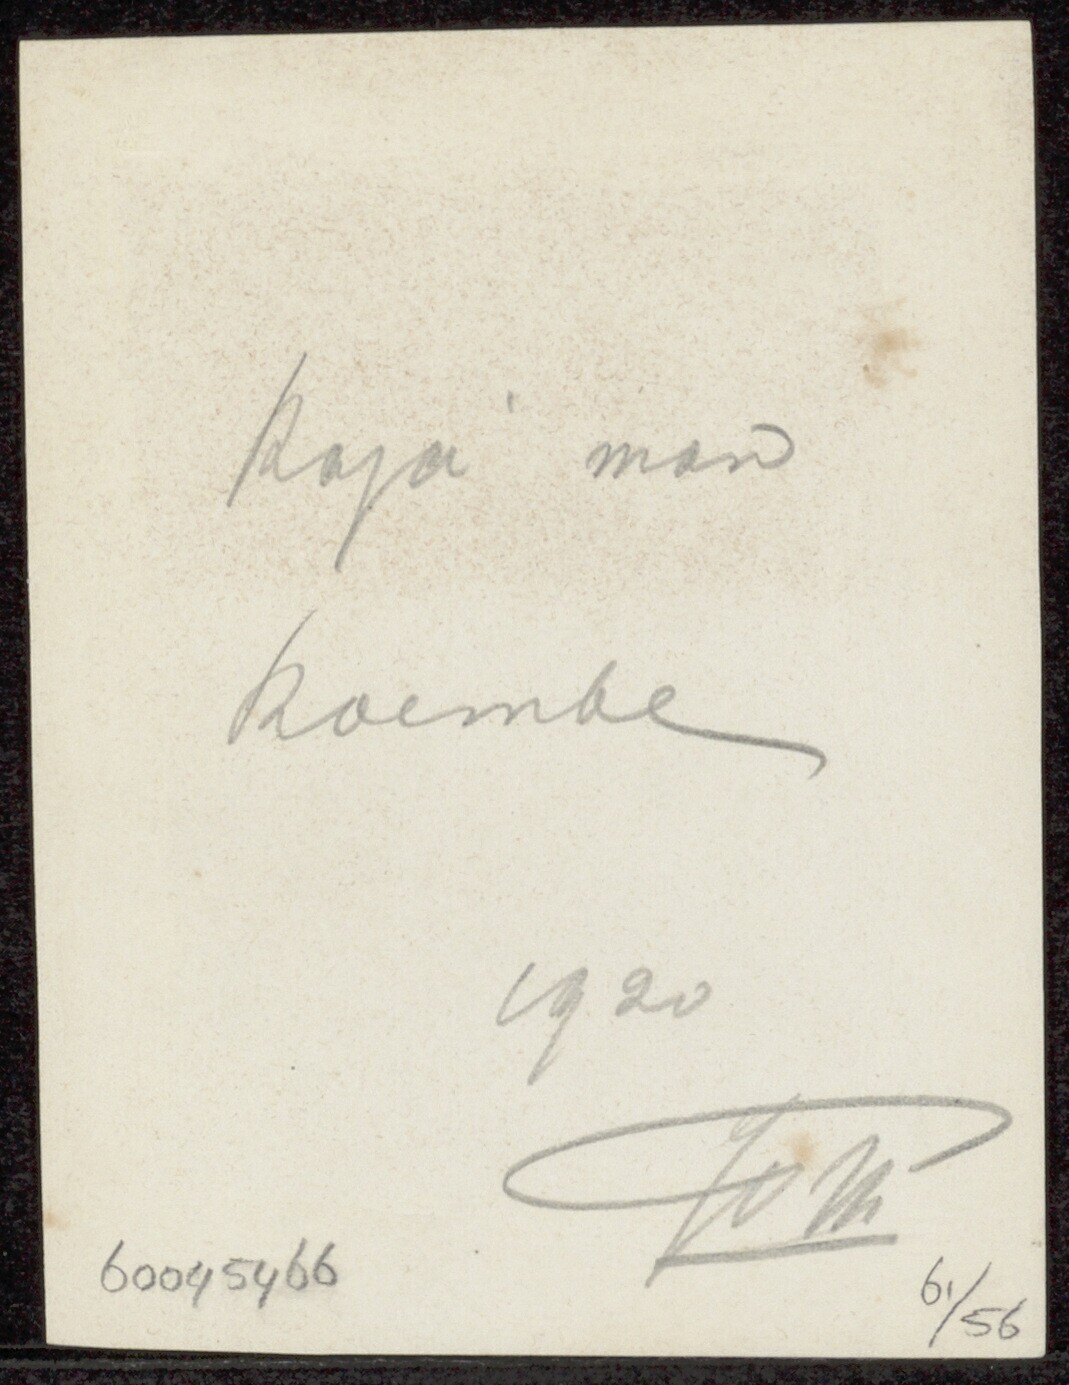 Kaja man
Koembe
1920
60045466
61/56